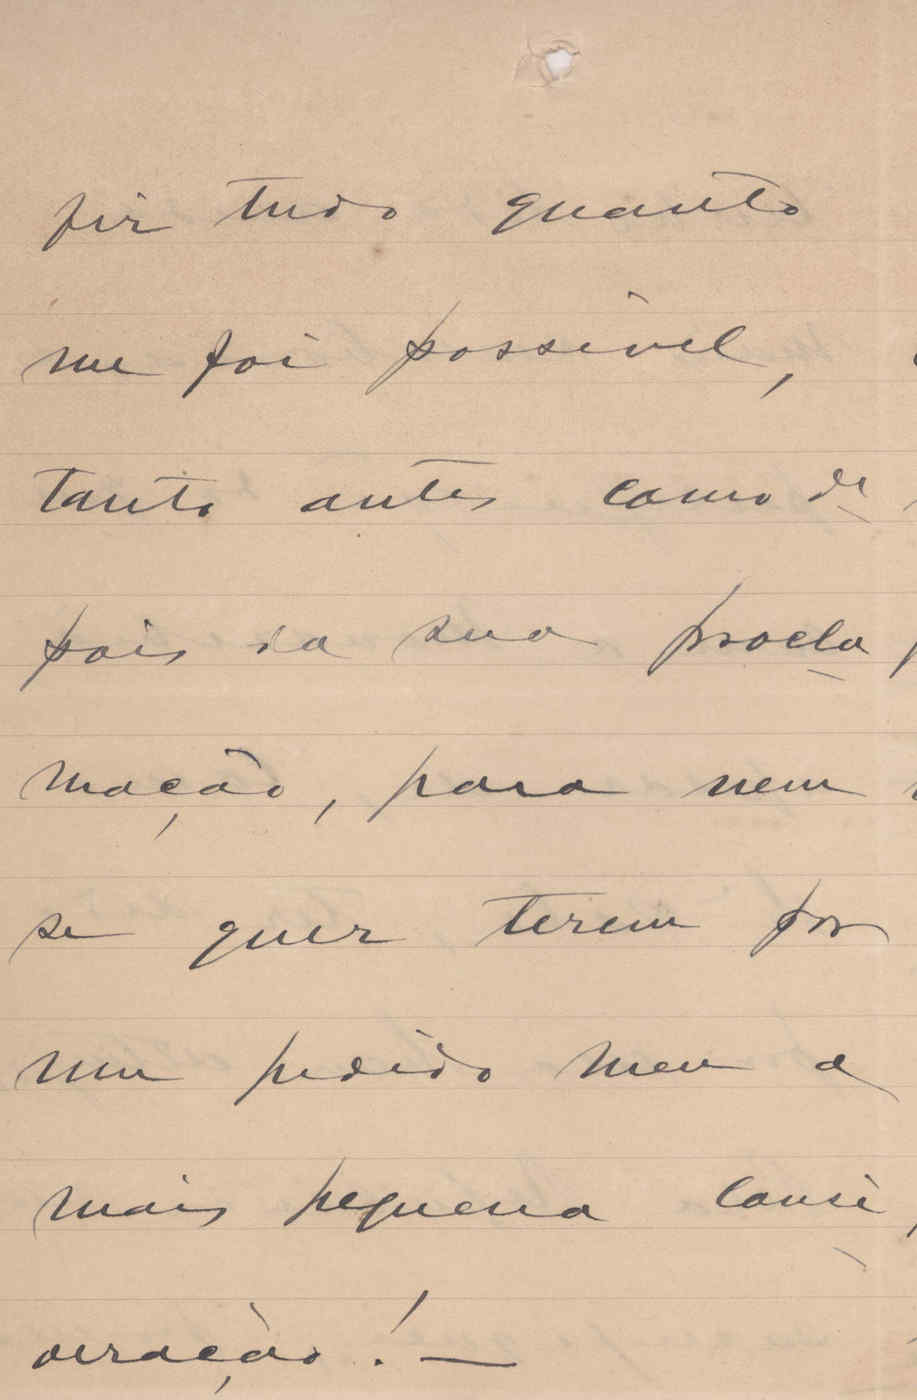 fiz tudo quanto
me foi possivel,
tanto antes como de-
pois da sua procla-
mação, para nem
se quer terem por
um pedido meu a
mais pequena consi-
deração! —